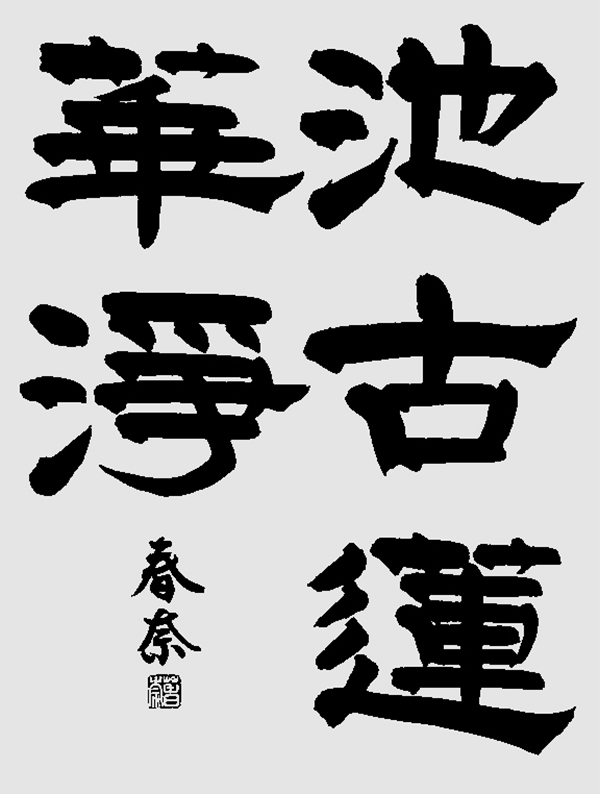 池古蓮
華淨
春奈